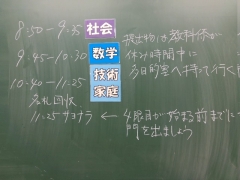 8:50-9:35 社会
9:45-10:30 数学
10:40-11:25 技術
家庭
名札回収
11:25 サヨナラ ← 4限目が始まる前までに
門を出ましょう
提出物は教科係が
休み時間中に
多目的室へ持って行く